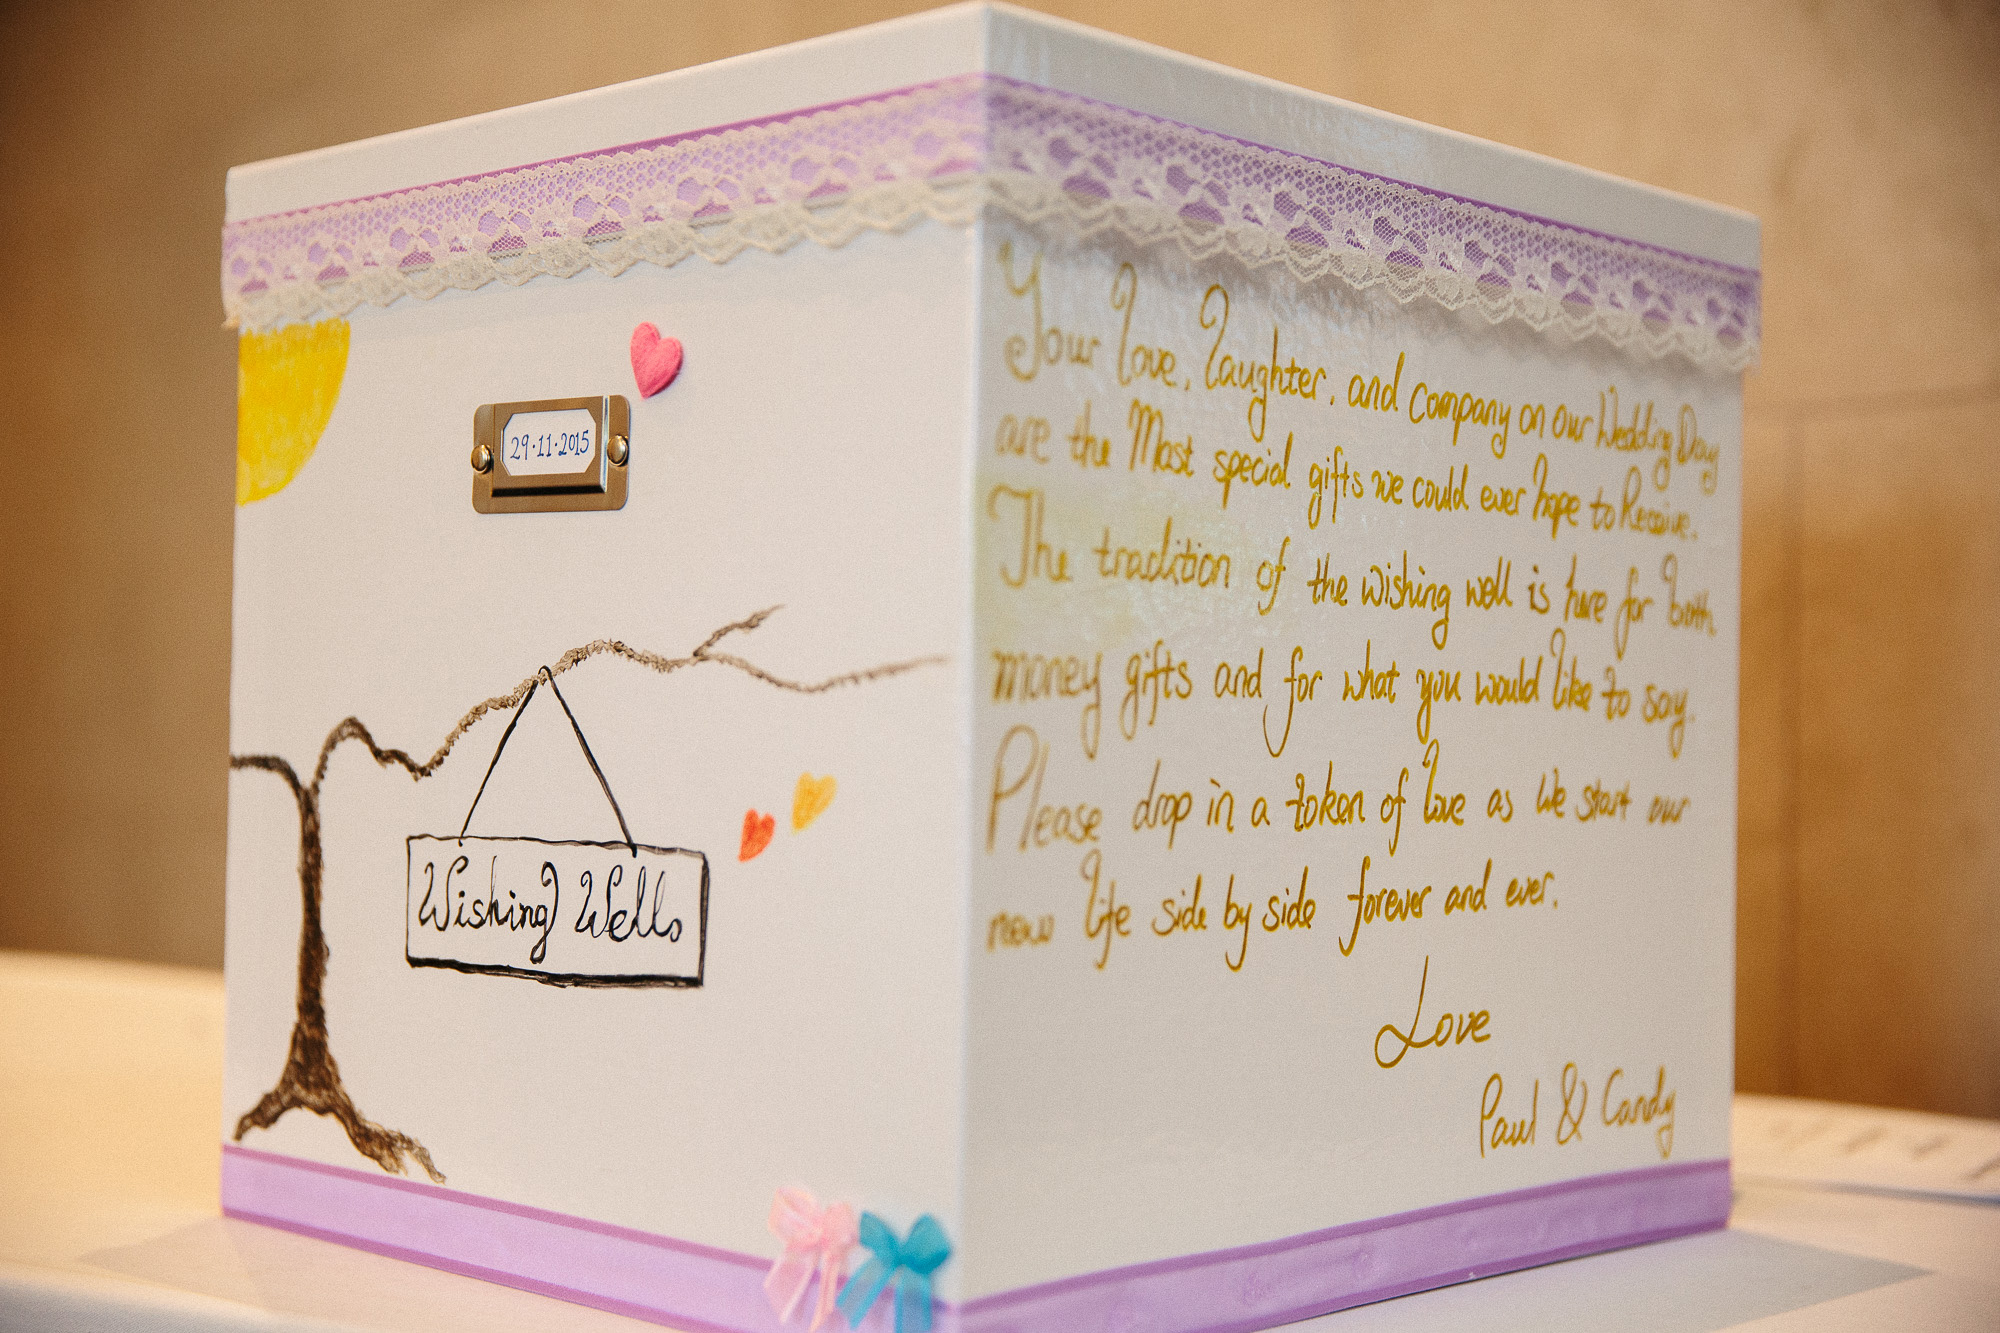 29·11·2015
Wishing Wells
Your love, laughter, and company on our Wedding Day
are the Most special gifts we could ever hope to Receive.
The tradition of the wishing well is here for both
money gifts and for what you would like to say.
Please drop in a token of love as we start our
new life side by side forever and ever.
Love
Paul & Candy